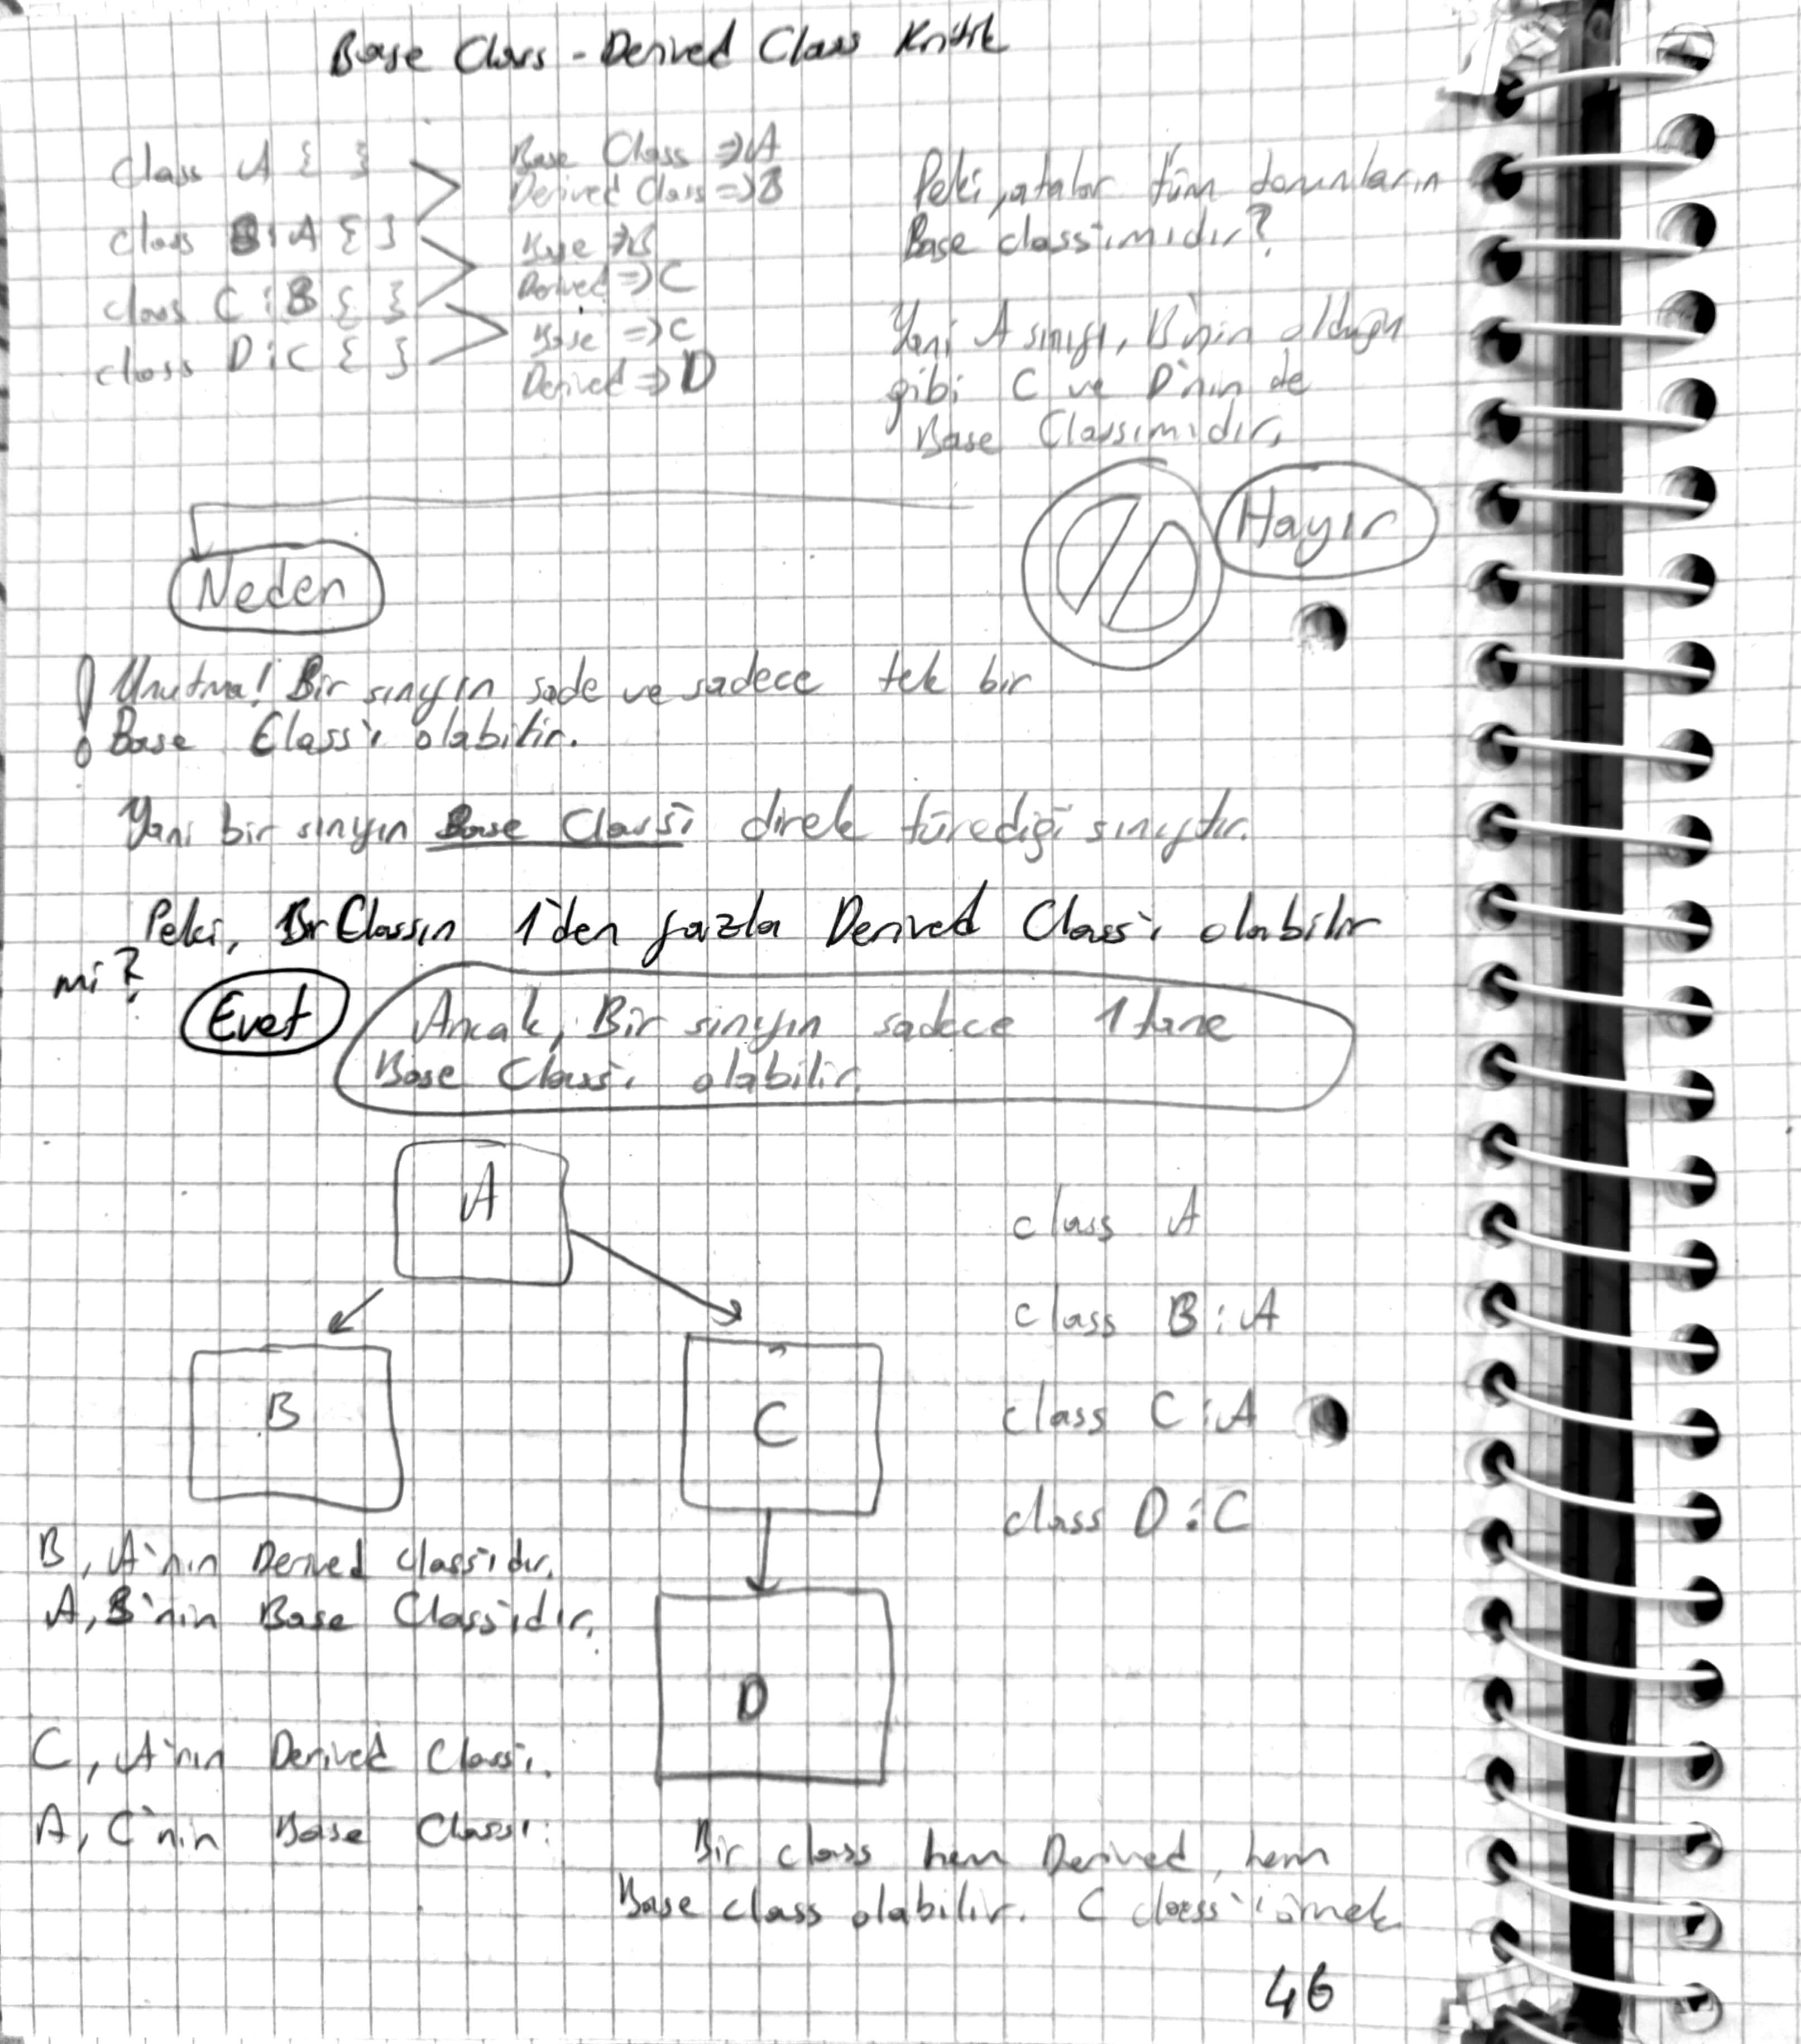 Base Class - Derived Class Kritik
class A { }
class B : A { }
class C : B { }
class D : C { }
Base Class => A
Derived Class => B
Base => B
Derived => C
Base => C
Derived => D
Peki, atalar tüm torunların
Base class'ımıdır?
Yani A sınıfı, B'nin olduğu
gibi C ve D'nin de
Base Classımıdır.
Hayır
Neden
! Unutma! Bir sınıfın sade ve sadece tek bir
Base Class'ı olabilir.
Yani bir sınıfın Base Class'ı direk türediği sınıftır.
Peki, Bir Classın 1'den fazla Derived Class'ı olabilir
mi?
Evet
Ancak, Bir sınıfın sadece 1 tane
Base Class'ı olabilir.
A
B
C
D
class A
class B : A
class C : A
class D : C
B, A'nın Derived class'ıdır.
A, B'nin Base Class'ıdır.
C, A'nın Derived Class'ı.
A, C'nin Base Class'ı.
Bir class hem Derived, hem
Base class olabilir. C class'ı örnek
46